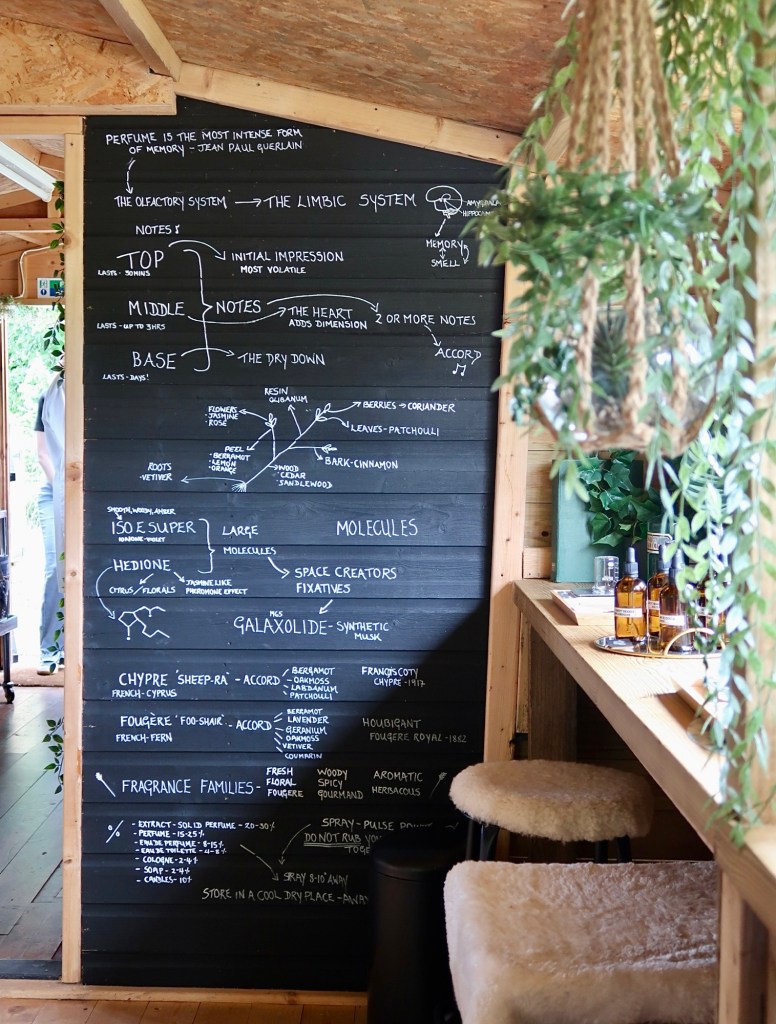 PERFUME IS THE MOST INTENSE FORM
OF MEMORY - JEAN PAUL GUERLAIN
THE OLFACTORY SYSTEM → THE LIMBIC SYSTEM
AMYGDALA
HIPPOCAMPUS
MEMORY
SMELL
NOTES:
TOP
LASTS - 30MINS
INITIAL IMPRESSION
MOST VOLATILE
MIDDLE
LASTS - UP TO 3HRS
NOTES
THE HEART
ADDS DIMENSION
2 OR MORE NOTES
ACCORD
BASE
LASTS - DAYS!
THE DRY DOWN
RESIN
OLIBANUM
FLOWERS
· JASMINE
· ROSE
BERRIES → CORIANDER
LEAVES - PATCHOULI
PEEL
· BERGAMOT
· LEMON
· ORANGE
BARK - CINNAMON
ROOTS
· VETIVER
WOOD
· CEDAR
SANDLEWOOD
SMOOTH, WOODY, AMBER
ISO E SUPER
IONONE-VIOLET
LARGE
MOLECULES
MOLECULES
HEDIONE
CITRUS / FLORALS
JASMINE LIKE
PHEROMONE EFFECT
SPACE CREATORS
FIXATIVES
GALAXOLIDE - SYNTHETIC
MUSK
CHYPRE "SHEEP-RA" - ACCORD
FRENCH - CYPRUS
BERGAMOT
OAKMOSS
LABDANUM
PATCHOULI
FRANÇIS COTY
CHYPRE - 1917
FOUGÈRE "FOO-SHAIR" - ACCORD
FRENCH - FERN
BERGAMOT
LAVENDER
GERANIUM
OAKMOSS
VETIVER
COUMARIN
HOUBIGANT
FOUGÈRE ROYAL - 1882
FRAGRANCE FAMILIES -
FRESH
FLORAL
FOUGÈRE
WOODY
SPICY
GOURMAND
AROMATIC
HERBACOUS
%
- EXTRACT - SOLID PERFUME - 20-30%
- PERFUME - 15-25%
- EAU DE PERFUME - 8-15%
- EAU DE TOILETTE - 4-8%
- COLOGNE - 2-4%
- SOAP - 2-4%
- CANDLES - 10%
SPRAY - PULSE
DO NOT RUB
SPRAY 8-10" AWAY
STORE IN A COOL DRY PLACE - AWAY